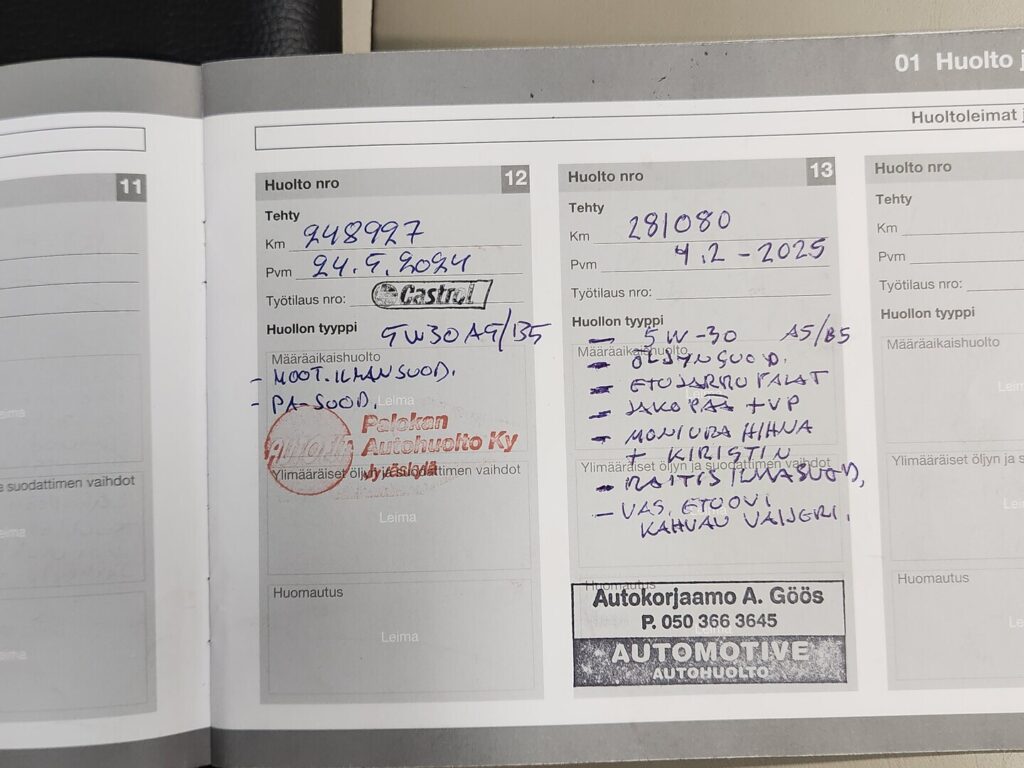 01 Huolto j
Huoltoleimat j
11
e suodattimen vaihdot
Huolto nro 12
Tehty
Km 248927
Pvm 24.9.2024
Työtilaus nro: Castrol
Huollon tyyppi
5W30 A5/B5
Määräaikaishuolto
- MOOT.ILMANSUOD.
Leima
- PA-SUOD.
Palokan
Autohuolto Ky
Jyväskylä
Ylimääräiset öljyn ja suodattimen vaihdot
Leima
Huomautus
Leima
Huolto nro 13
Tehty
Km 281080
Pvm 4.2-2025
Työtilaus nro:
Huollon tyyppi
- 5W-30 A5/B5
Määräaikaishuolto
- ÖLJYNSUOD.
- ETUJARRUPALAT
- JAKOPÄÄ +VP
- MONIURAHIHNA
+ KIRISTIN
Ylimääräiset öljyn ja suodattimen vaihdot
- RAITISILMASUOD,
- VAS. ETUOVI
KAHVAN VAIJERI.
Huomautus
Autokorjaamo A. Göös
P. 050 366 3645
Leima
AUTOMOTIVE
AUTOHUOLTO
Huolto nro
Tehty
Km
Pvm
Työtilaus nro:
Huollon tyyppi
Määräaikaishuolto
Le
Ylimääräiset öljyn ja s
Le
Huomautus
Le